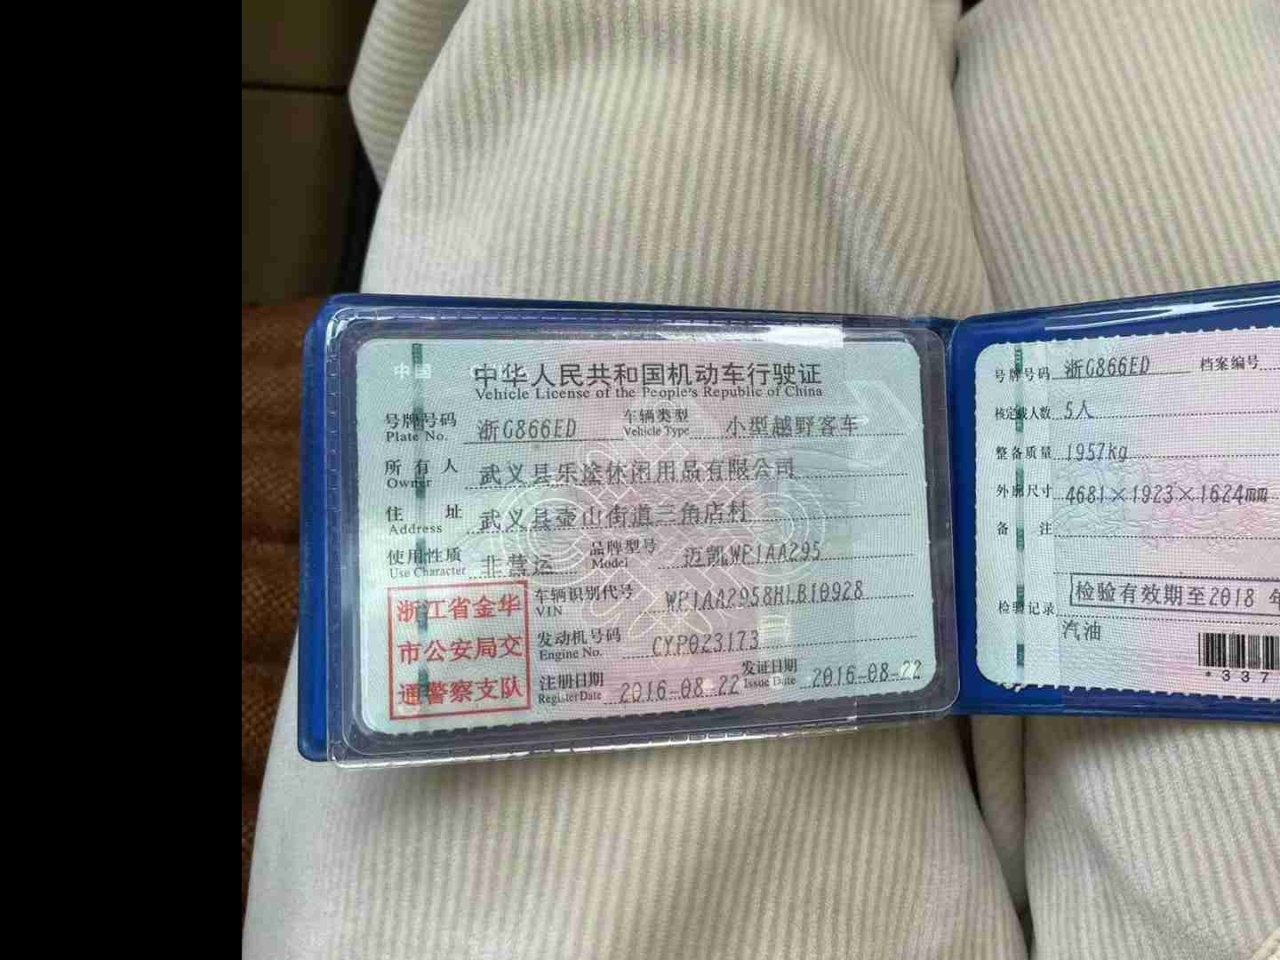 中国
中华人民共和国机动车行驶证
Vehicle License of the People's Republic of China
号牌号码 浙G866ED 车辆类型 小型越野客车
Plate No. Vehicle Type
所有人 武义县乐途休闲用品有限公司
Owner
住址 武义县壶山街道三角店村
Address
使用性质 非营运 品牌型号 迈凯WP1AA295
Use Character Model
浙江省金华
市公安局交
通警察支队
车辆识别代号 WP1AA2958HLB10928
VIN
发动机号码 CYP023173
Engine No.
注册日期 2016-08-22 发证日期 2016-08-22
Register Date Issue Date
号牌号码 浙G866ED 档案编号
核定载人数 5人
整备质量 1957kg
外廓尺寸 4681×1923×1624mm
备注
检验有效期至2018年
检验记录
汽油
*337